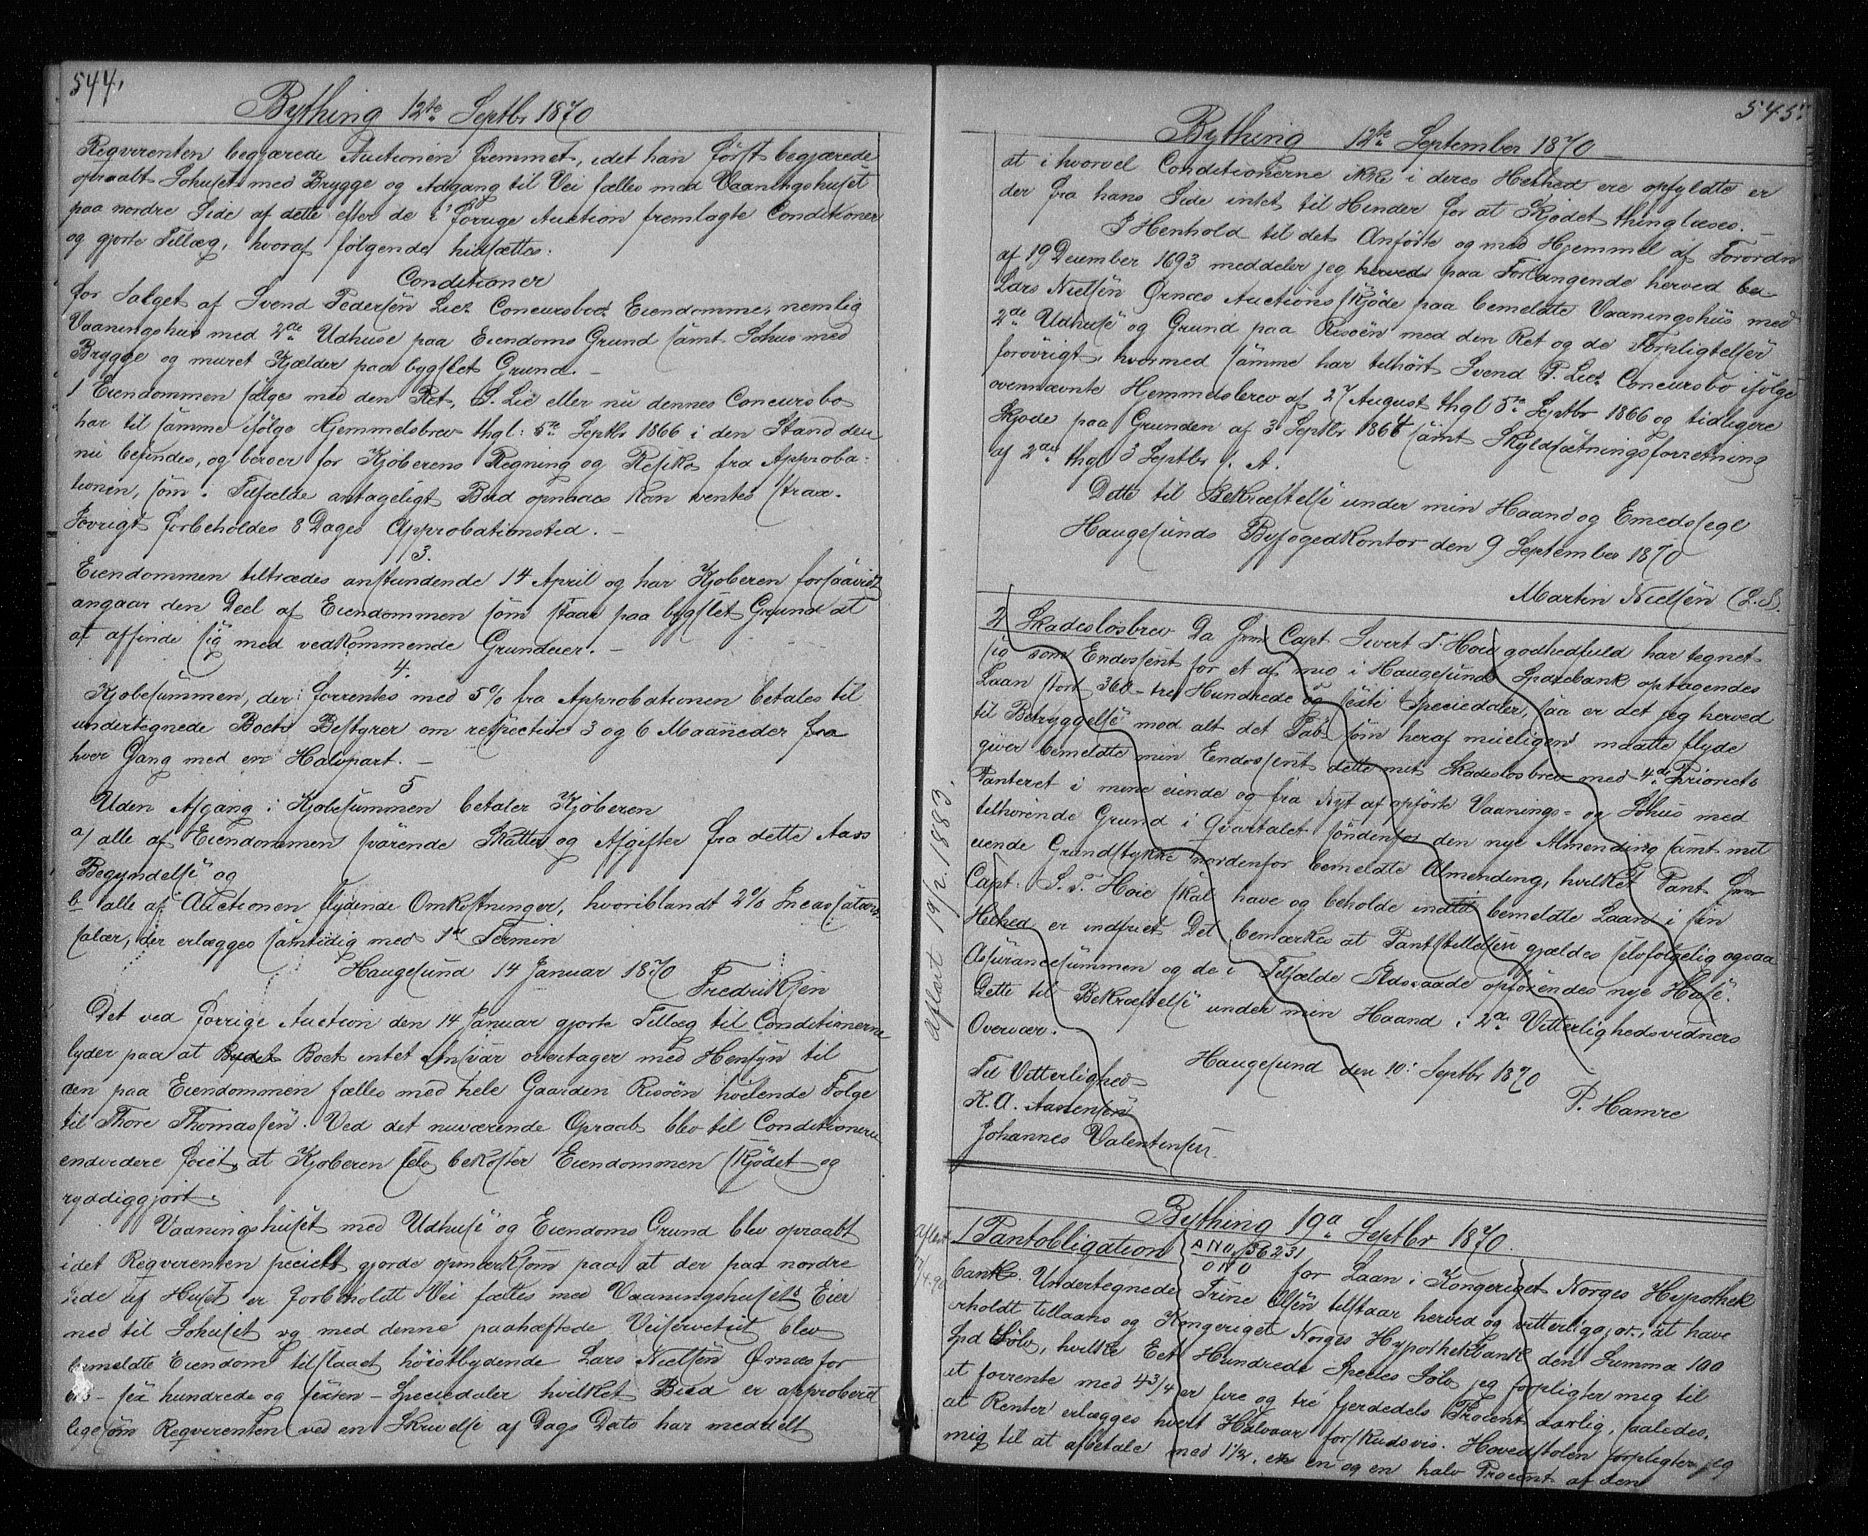 544.
Bything 12te Septbr 1870
Reqvirenten begjærede Auctionen fremmet, idet han først begjærede
opraabt Søhuset med Brygge og Adgang til Vei fælles med Vaaningshuset
paa nordre Side af dette efter de i forrige Auction fremlagte Conditioner
og gjorte Tillæg, hvoraf følgende hidsættes:
Conditioner
for Salget af Svend Pedersen Lies Concursboes Eiendomme, nemlig
Vaaningshus med 2de Udhuse paa Eiendoms Grund samt Søhus med
Brygge og muret Kjælder paa bygslet Grund. –
1 Eiendommen sælges med den Ret, S. Lie eller nu dennes Concursbo
har til samme ifølge Hjemmelsbrev thgl: 5te Septbr 1866 i den Stand den
nu befindes, og beroer for Kjøberens Regning og Risiko fra Approba-
tionen, som i Tilfælde antageligt Bud opnaaes kan ventes strax.
Iøvrigt forbeholdes 8 Dages Approbationstid. –
3.
Eiendommen tiltrædes anstundende 14 April og har Kjøberen forsaavidt
angaar den Deel af Eiendommen som staar paa bygslet Grund at
at affinde sig med vedkommende Grundeier. –
4.
Kjøbesummen, der forrentes med 5% fra Approbationen betales til
undertegnede Boets Bestyrer om respective 3 og 6 Maaneder fra
hver Gang med en Halvpart. –
5
Uden Afgang i Kjøbesummen betaler Kjøberen
a) alle af Eiendommen svarende Skatter og Afgifter fra dette Aars
Begyndelse og
b alle af Auctionen flydende Omkostninger, hvoriblandt 2% Incassations
salær, der erlægges samtidig med 1ste Termin
Haugesund 14 Januar 1870 Fredriksen
Det ved forrige Auction den 14 Januar gjorte Tillæg til Conditionerne
lyder paa at Boet intet Ansvar overtager med Hensyn til
den paa Eiendommen fælles med hele Gaarden Risøen hvilende Følge
til Thore Thomassen. Ved det nuværende Opraab blev til Conditionerne
endvidere føiet, at Kjøberen selv bekoster Eiendommen skjødet og
ryddiggjort.
Vaaningshuset med Udhuse og Eiendoms Grund blev opraabt
idet Reqvirenten specielt gjorde opmærksom paa at der paa nordre
Side af Huset er forbeholdt Vei fælles med Vaaningshusets Eier
ned til Søhuset og med denne paahæftede Veiservetut blev
bemeldte Eiendom tilslaaet høistbydende Lars Nielsen Ørnæs for
sex hundrede og sexten – Speciedaler hvilket Bud er approberet
ligesom Reqvirenten ved en Skrivelse af Dags Dato har meddelt
545.
Bything 12te September 1870
at ihvorvel Conditionerne ikke i deres Helhed ere opfyldte er
der fra hans Side intet til Hinder for at Skjødet thinglæses. –
I Henhold til det Anførte og med Hjemmel af Forordn
af 19 December 1693 meddeler jeg herved paa Forlangende herved be-
Lars Nielsen Ørnæs Auctionsskjøde paa bemeldte Vaaningshus med
2de Udhuse og Grund paa Risøen med den Ret og de Forpligtelser
forøvrigt, hvormed samme har tilhørt Svend P. Lies Concursbo ifølge
ovennævnte Hjemmelsbrev af 27 August thgl 5te Septbr 1866 og tidligere
Skjøde paa Grunden af 3 Septbr 1866 samt Skyldsætningsforretning
af 2den thgl 3 Septbr s. A.
Dette til Bekræftelse under min Haand og Embedssegl
Haugesunds Byfogedkontor den 9 September 1870
Martin Nielsen (L.S.
2 Skadesløsbrev Da Hrr Capt Sivert T. Hoie godhedsfuld har tegnet
sig som Endossent for et af mig i Haugesunds Sparebank optagendes
Laan stort 360 – tre Hundrede og sexti Speciedaler, saa er det jeg herved
til Betryggelse mod alt det Tab som heraf mueligen maatte flyde
giver bemeldte min Endossent dette mit Skadesløsbrev med 4de Prioritets
Panteret i mine eiende og fra Nyt af opførte Vaanings- og Søhus med
tilhørende Grund i Qvartalet søndenfor den nye Almending samt mit
eiende Grundstykke nordenfor bemeldte Almending, hvilket Pant Hrr
Capt. S. T. Hoie skal have og beholde indtil bemeldte Laan i sin
Helhed er indfriet. Det bemærkes at Pantstillelsen gjældes selvfølgelig ogsaa
Assurancesummen og de i Tilfælde Ildsvaade opførendes nye Huse.
Dette til Bekræftelse under min Haand i 2de Vitterlighedsvidners
Overvær.
Haugesund den 10: Septbr 1870
P. Hamre
Til Vitterlighed
K. A. Aanensen
Johannes Valentinsen
aflæst 19/2. 1883.
Bything 19de Septbr 1870.
Aflæst
1 Pantobligation A No 36231 for Laan i Kongeriget Norges Hypothek
bank. Undertegnede Trine Olsen tilstaar herved og vitterliggjør, at have
erholdt tillaans og Kongeriget Norges Hypothekbank den Summa 100
Spd Sølv, hvilke Eet Hundrede Species Sølv jeg forpligter mig til
at forrente med 4 3/4 er fire og tre fjerdedels Procent aarlig, saaledes,
at Renter erlægges hvert Halvaar forskudsvis. Hovedstolen forpligter jeg
mig til at afbetale med 1 1/2. en og en halv Procent af den